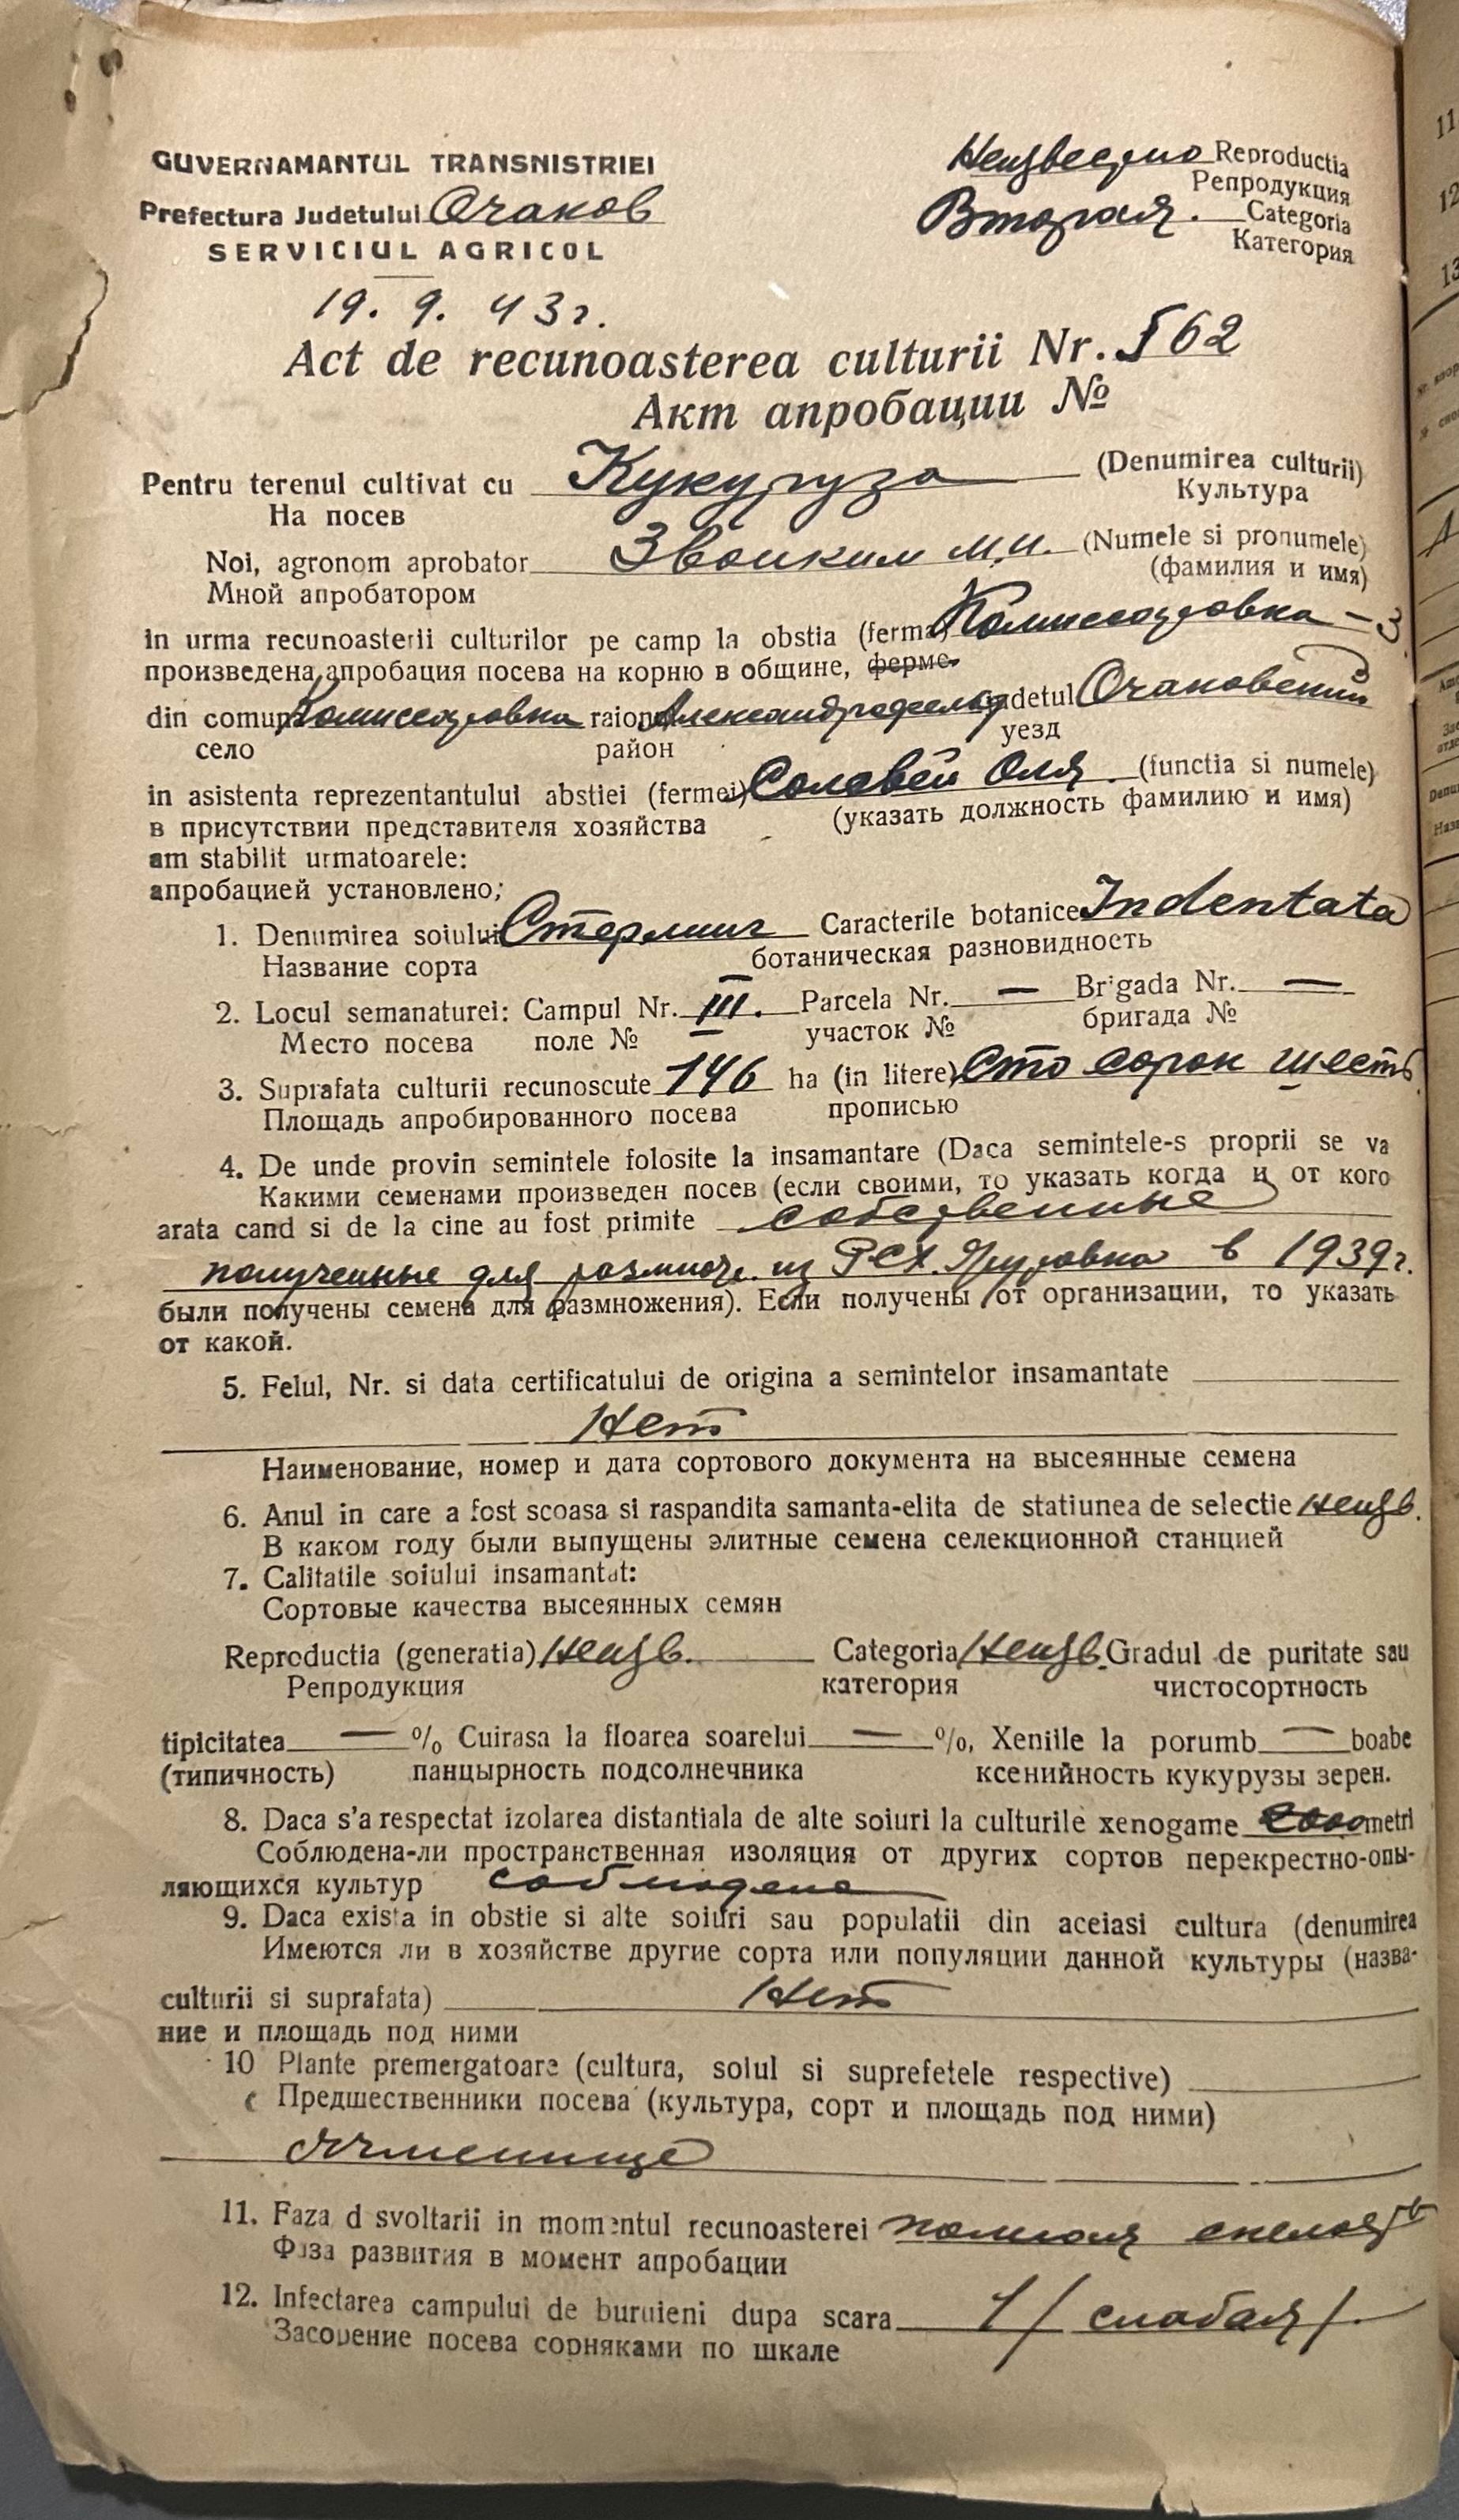 GUVERNAMANTUL TRANSNISTRIEI
Prefectura Judetului Очаков
SERVICIUL AGRICOL
19. 9. 43 г.
Неизвестно Reproductia
Репродукция
Вторая. Categoria
Категория
Act de recunoasterea culturii Nr. 562
Акт апробации №
Pentru terenul cultivat cu Кукуруза (Denumirea culturii)
На посев Культура
Noi, agronom aprobator М.И. (Numele si pronumele)
Мной апробатором (фамилия и имя)
in urma recunoasterii culturilor pe camp la obstia (ferma) Комиссаровка – 3
произведена апробация посева на корню в общине, ферме
din comuna Комиссаровка raion Александрофельд judetul Очаковский
село район уезд
in asistenta reprezentantului abstiei (fermei) Соловей Оля. (functia si numele)
в присутствии представителя хозяйства (указать должность фамилию и имя)
am stabilit urmatoarele:
апробацией установлено;
1. Denumirea soiului Стерлинг Caracterile botanice Indentata
Название сорта ботаническая разновидность
2. Locul semanaturei: Campul Nr. III. Parcela Nr. — Brigada Nr. —
Место посева поле № участок № бригада №
3. Suprafata culturii recunoscute 146 ha (in litere) Сто сорок шесть
Площадь апробированного посева прописью
4. De unde provin semintele folosite la insamantare (Daca semintele-s proprii se va
Какими семенами произведен посев (если своими, то указать когда и от кого
arata cand si de la cine au fost primite собственные
полученные для размнож. из в 1939 г.
были получены семена для размножения). Если получены от организации, то указать
от какой.
5. Felul, Nr. si data certificatului de origina a semintelor insamantate
Нет
Наименование, номер и дата сортового документа на высеянные семена
6. Anul in care a fost scoasa si raspandita samanta-elita de statiunea de selectie Неизв.
В каком году были выпущены элитные семена селекционной станцией
7. Calitatile soiului insamantat:
Сортовые качества высеянных семян
Reproductia (generatia) Неизв. Categoria Неизв. Gradul de puritate sau
Репродукция категория чистосортность
tipicitatea — % Cuirasa la floarea soarelui — %, Xeniile la porumb — boabe
(типичность) панцырность подсолнечника ксенийность кукурузы зерен.
8. Daca s'a respectat izolarea distantiala de alte soiuri la culturile xenogame metri
Соблюдена-ли пространственная изоляция от других сортов перекрестно-опы-
ляющихся культур соблюдена
9. Daca exista in obstie si alte soiuri sau populatii din aceiasi cultura (denumirea
Имеются ли в хозяйстве другие сорта или популяции данной культуры (назва-
culturii si suprafata) Нет
ние и площадь под ними
10 Plante premergatoare (cultura, solul si suprefetele respective)
Предшественники посева (культура, сорт и площадь под ними)
Ячменище
11. Faza d svoltarii in momentul recunoasterei полная спелость
Фаза развития в момент апробации
12. Infectarea campului de buruieni dupa scara 1 / слабая /.
Засорение посева сорняками по шкале